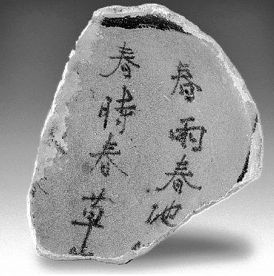 春雨春池
春時春草